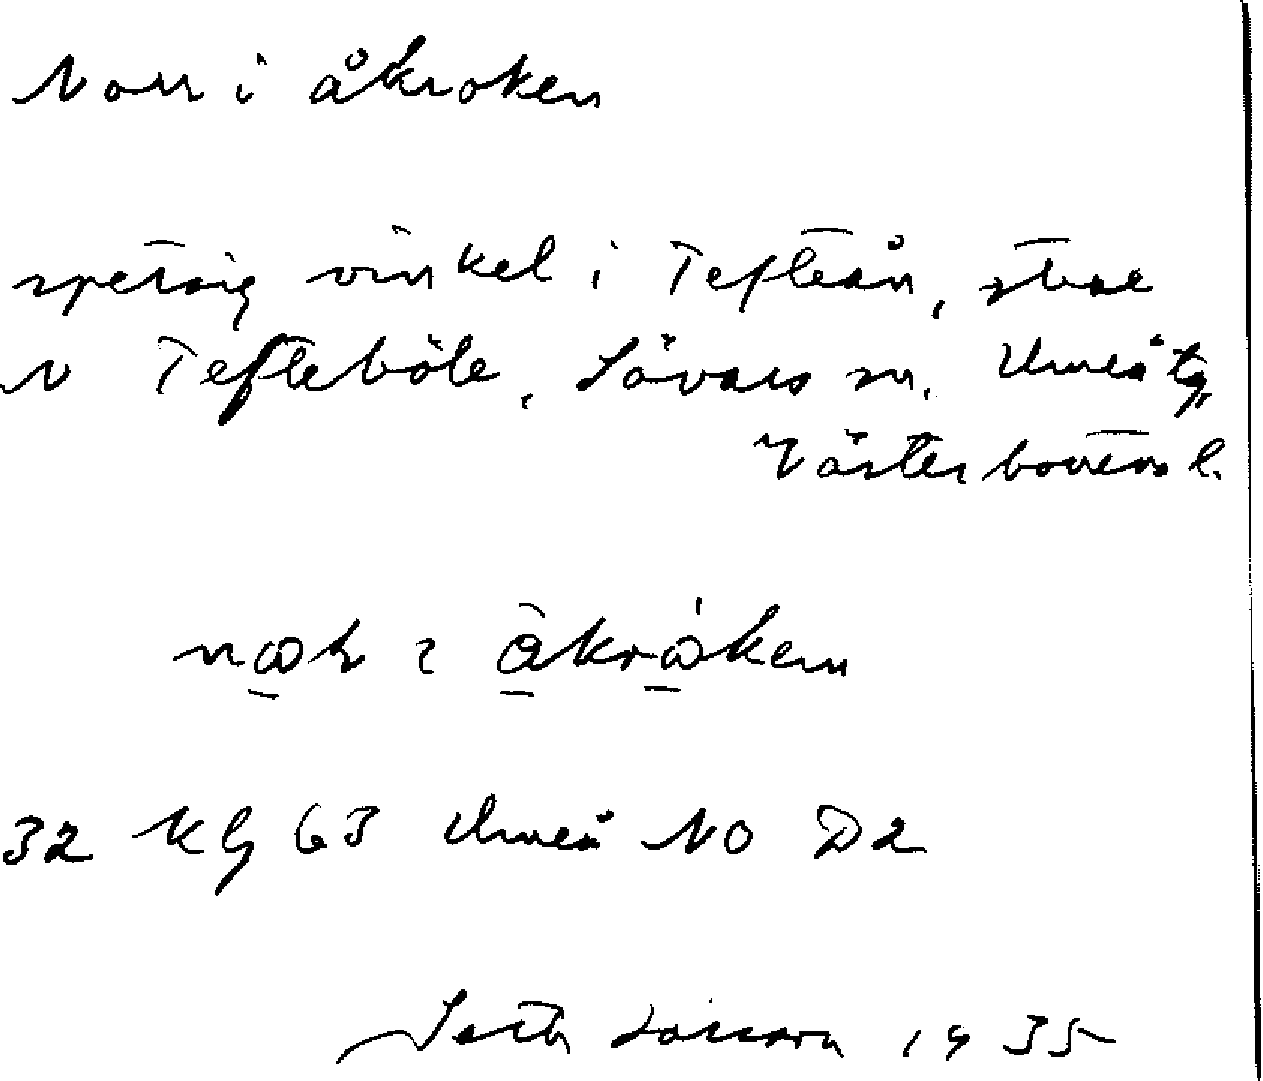 Norr i åkroken
spetsig vinkel i Tefteån, strax
N Tefteböle, Sävars sn, Umeå tg,
Västerbottens l.
32 Kg 63 Umeå NO D2
Seth Larsson 1935